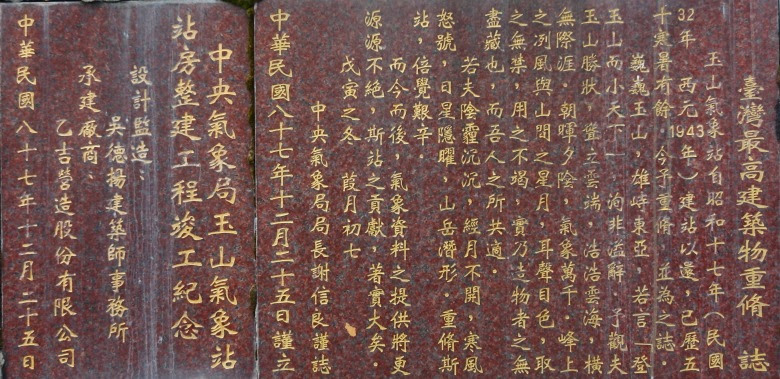 臺灣最高建築物重脩 誌
玉山氣象站自昭和十七年(民國
32年 西元1943年)建站以還,已歷五
十寒暑有餘。今予重脩,並為之誌。
巍巍玉山,雄峙東亞,若言「登
玉山而小天下」,洵非溢辭。予觀夫
玉山勝狀,聳立雲端,浩浩雲海,橫
無際涯。朝暉夕陰,氣象萬千。峰上
之冽風與山間之星月,耳聲目色,取
之無禁,用之不竭,實乃造物者之無
盡藏也,而吾人之所共適。
若夫陰霾沉沉,經月不開,寒風
怒號,日星隱曜,山岳潛形。重脩斯
站,倍覺艱辛。
而今而後,氣象資料之提供將更
源源不絕,斯站之貢獻,著實大矣。
戊寅之冬 葭月初七
中央氣象局局長謝信良謹誌
中華民國八十七年十二月二十五日謹立
中央氣象局玉山氣象站
站房整建工程竣工紀念
設計監造:
吳德揚建築師事務所
承建廠商:
乙吉營造股份有限公司
中華民國八十七年十二月二十五日